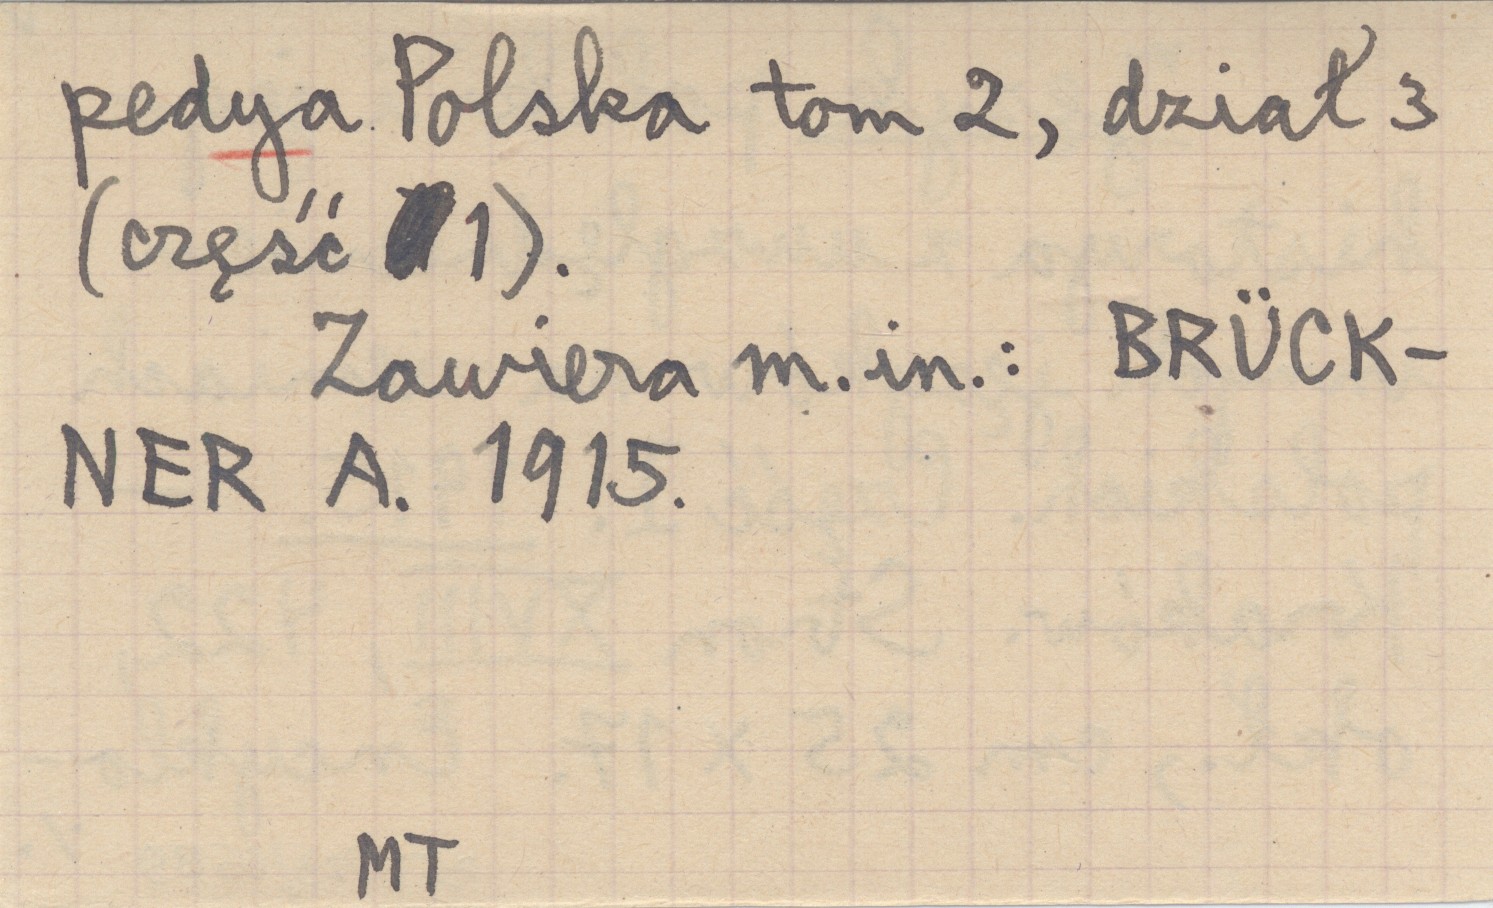 pedya Polska tom 2, dział 3
(część 1).
Zawiera m.in.: BRÜCK-
NER A. 1915.
MT